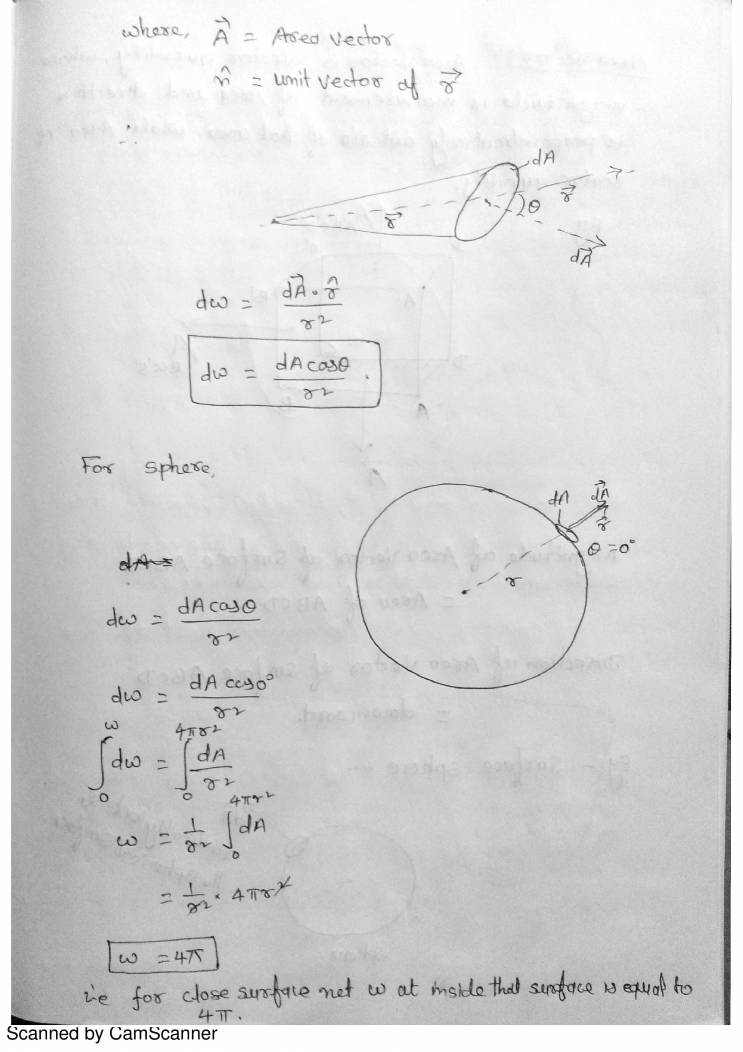 where, A⃗ = Area vector
n̂ = unit vector of r⃗
dA
r⃗
θ
r⃗
dA⃗
dω = dA⃗ · r̂ / r²
dω = dA cosθ / r² .
For sphere,
dA dA⃗
r⃗
θ = 0°
r
dA =
dω = dA cosθ / r²
dω = dA cos0° / r²
∫₀^ω dω = ∫₀^4πr² dA / r²
ω = 1/r² ∫₀^4πr² dA
= 1/r² × 4πr²
ω = 4π
i.e for close surface net ω at inside that surface is equal to
4π.
Scanned by CamScanner